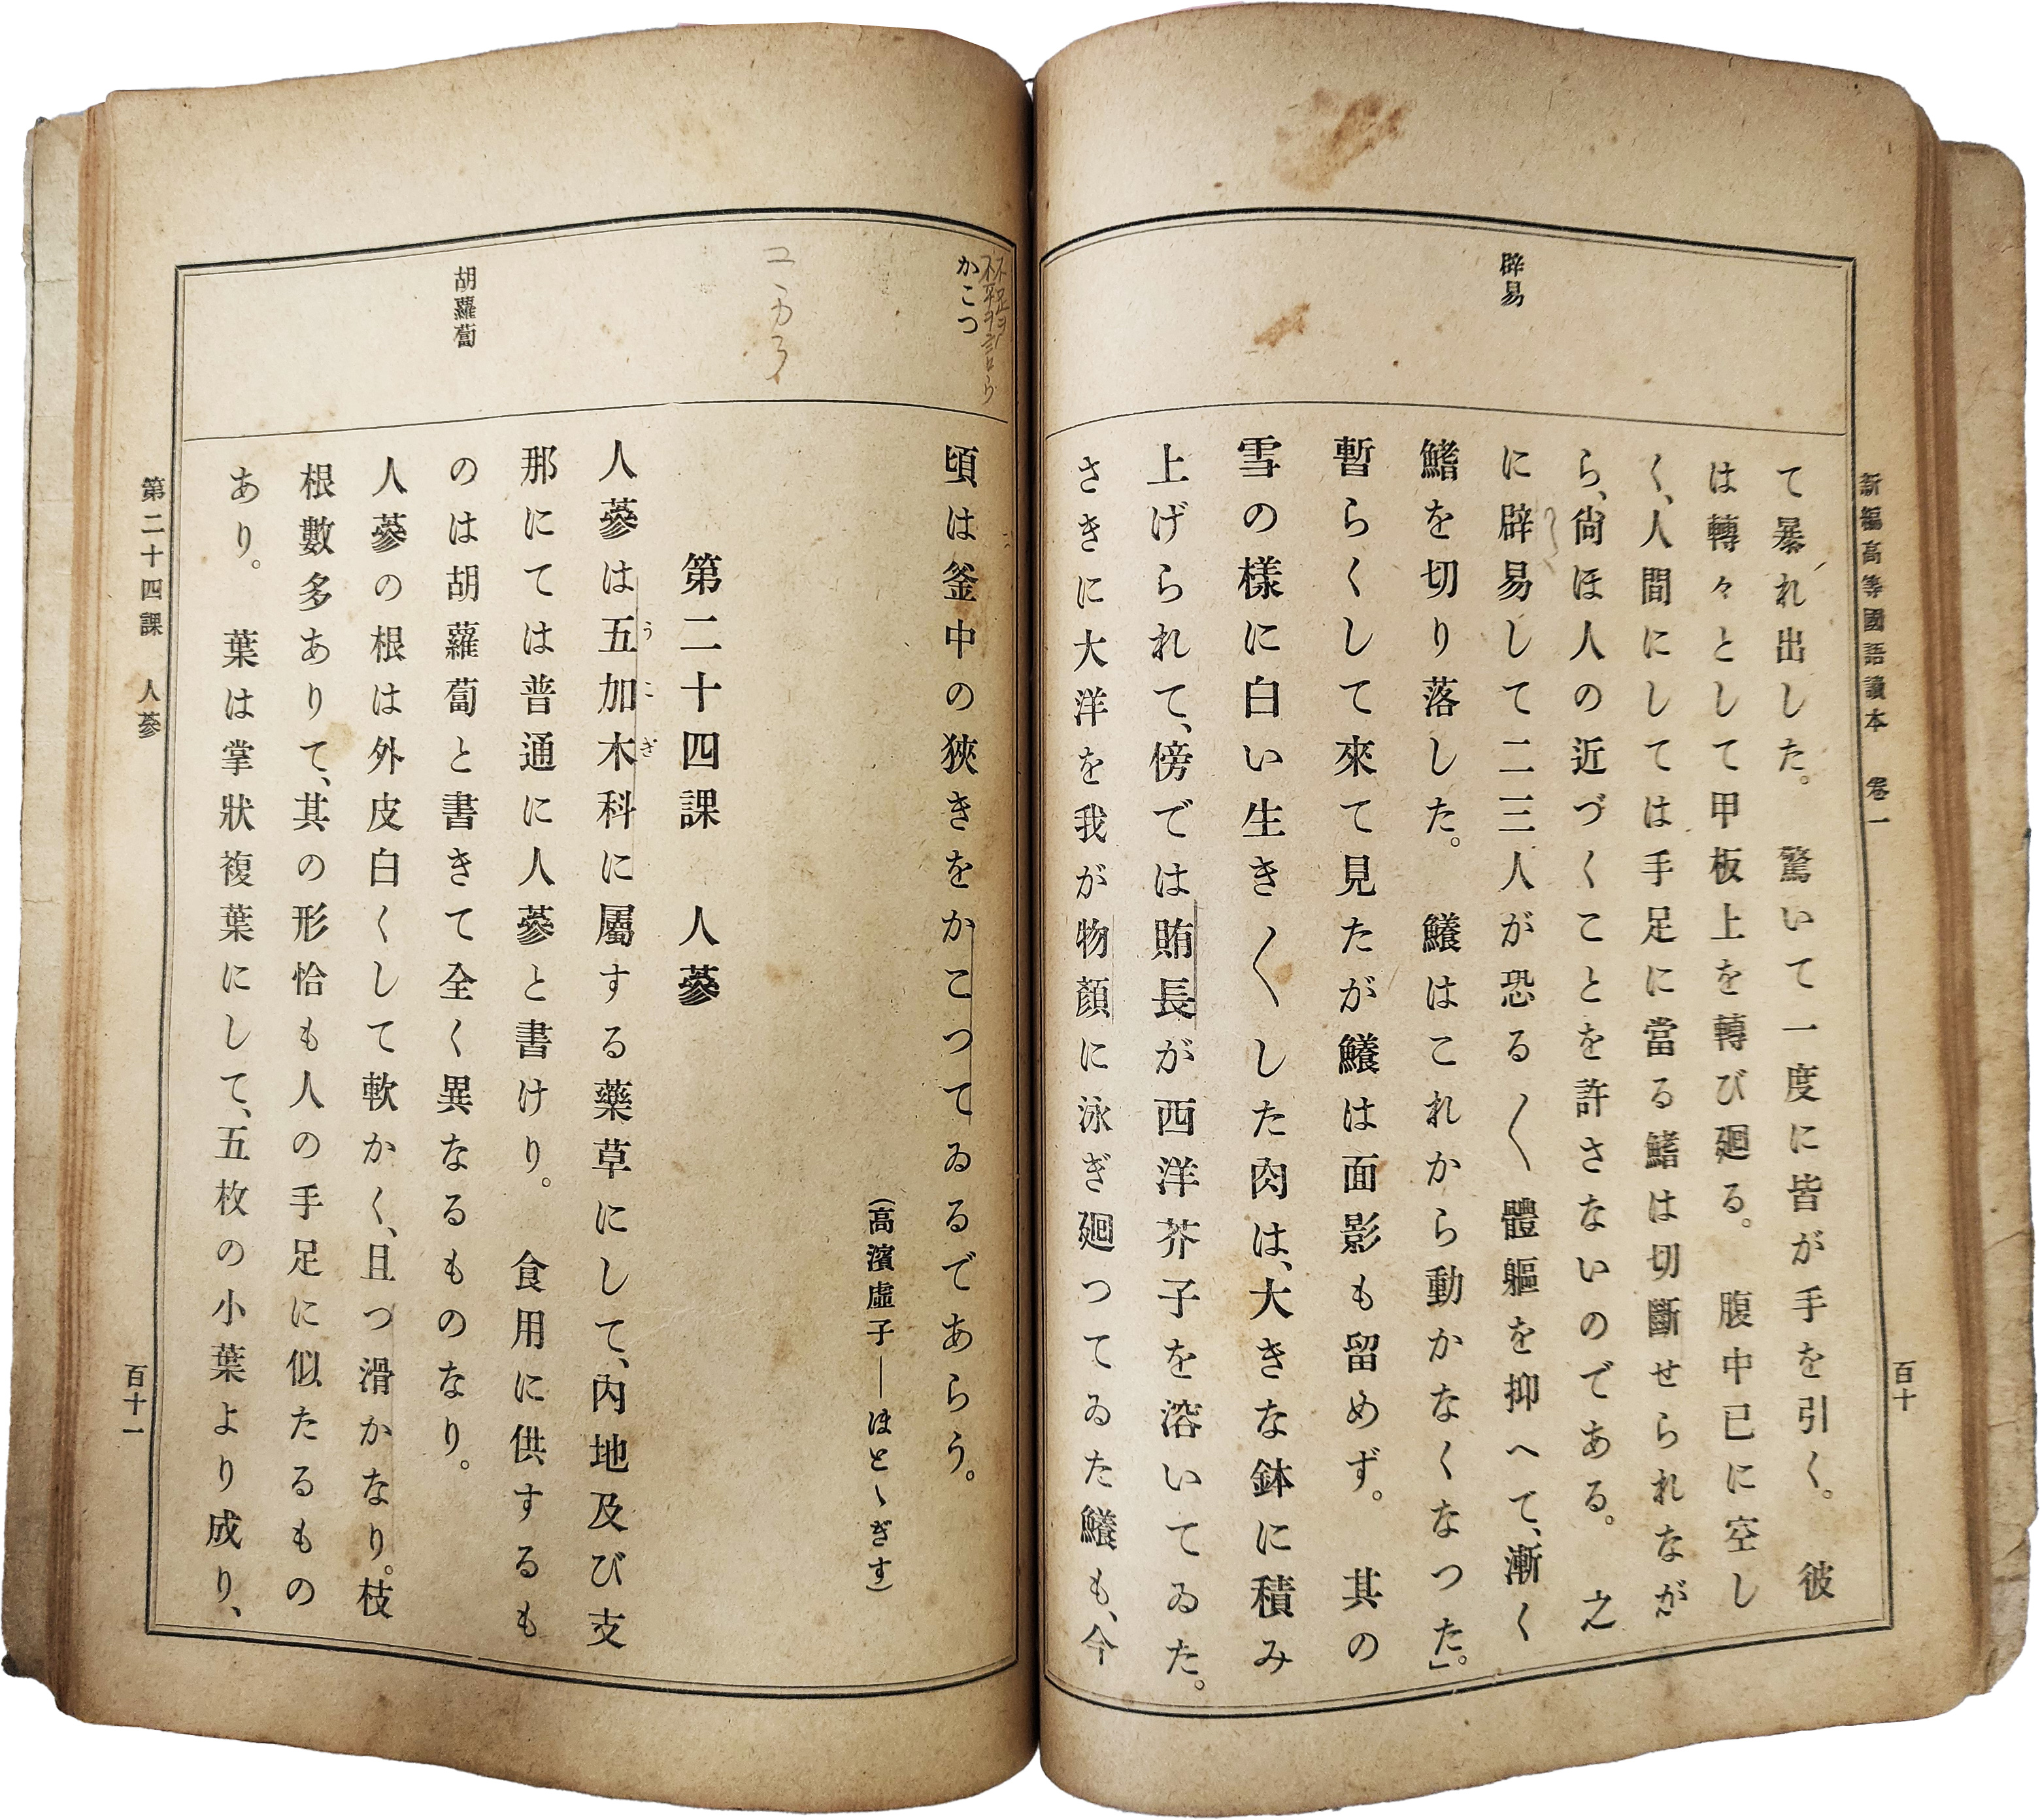 新編高等國語讀本 卷一
百十
辟易
て暴れ出した。 驚いて一度に皆が手を引く。 彼
は轉々として甲板上を轉び廻る。 腹中已に空し
く、人間にしては手足に當る鰭は切斷せられなが
ら、尙ほ人の近づくことを許さないのである。 之
に辟易して二三人が恐る〱體軀を抑へて、漸く
鰭を切り落した。 鱶はこれから動かなくなつた」。
暫らくして來て見たが鱶は面影も留めず。 其の
雪の樣に白い生き〱した肉は、大きな鉢に積み
上げられて、傍では賄長が西洋芥子を溶いてゐた。
さきに大洋を我が物顏に泳ぎ廻つてゐた鱶も、今
不足ヲ云フ
かこつ
頃は釜中の狹きをかこつてゐるであらう。
(高濱虛子―ほとゝぎす)
第二十四課 人蔘
人蔘は五加木科に屬する藥草にして、內地及び支
うこぎ
那にては普通に人蔘と書けり。 食用に供するも
胡蘿蔔
のは胡蘿蔔と書きて全く異なるものなり。
人蔘の根は外皮白くして軟かく、且つ滑かなり。枝
根數多ありて、其の形恰も人の手足に似たるもの
あり。 葉は掌狀複葉にして、五枚の小葉より成り、
第二十四課 人蔘
百十一